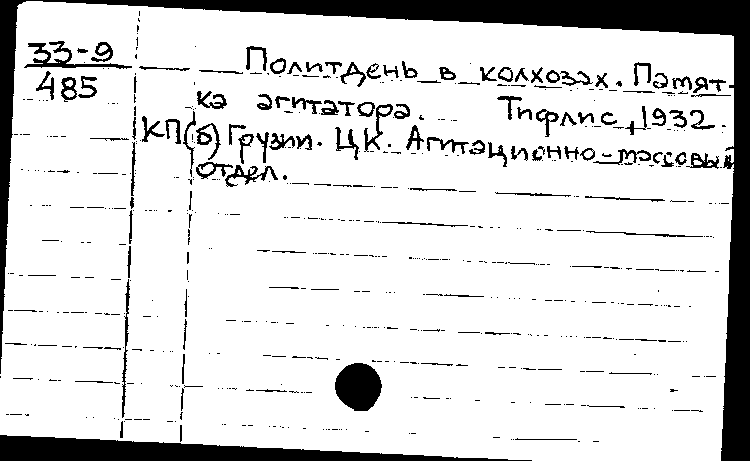 33-9
485
Политдень в колхозах. Памят-
ка агитатора. Тифлис, 1932.
КП(б) Грузии. ЦК. Агитационно-массовый
отдел.